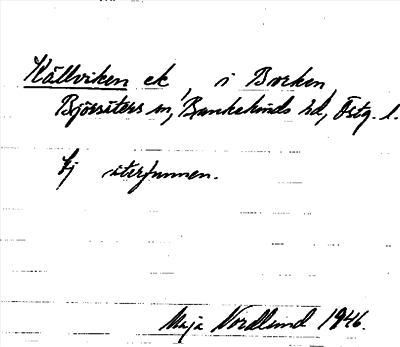 Källviken ek i Borken
Björsäters sn, Bankekinds hd, Östg. l.
Ej återfunnen.
Maja Nordlund 1946.